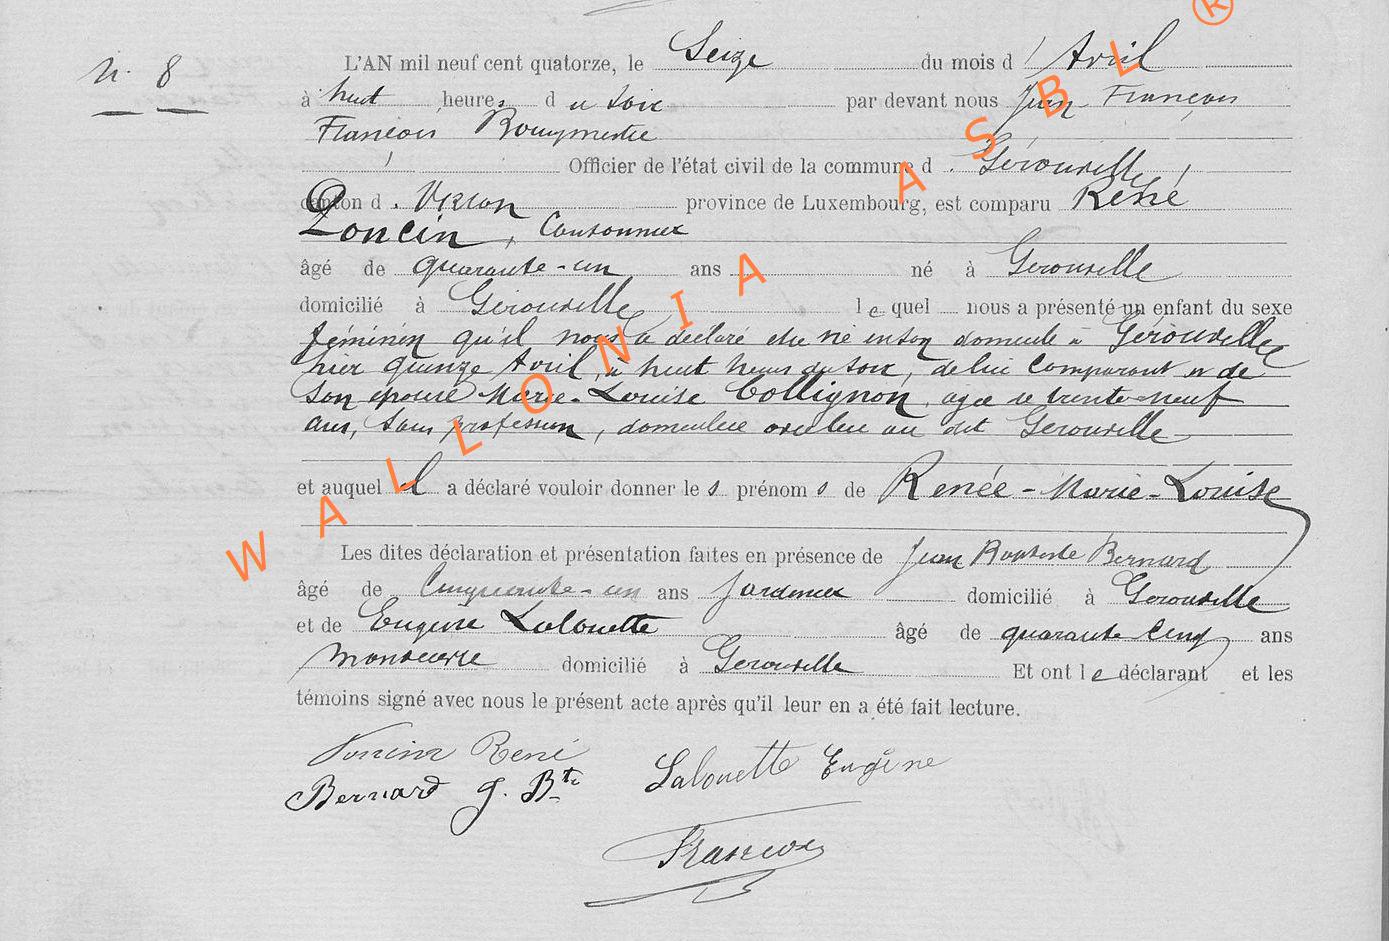 N. 8
L'AN mil neuf cent quatorze, le Seize du mois d'Avril
à huit heures du soir par devant nous Jean François
François Bourgmestre
Officier de l'état civil de la commune d. Gérouville
canton d. Virton province de Luxembourg, est comparu René
Poncin, Cantonnier
âgé de quarante-un ans né à Gérouville
domicilié à Gérouville lequel nous a présenté un enfant du sexe
féminin qu'il nous a déclaré être né en son domicile à Gérouville
hier quinze Avril, à huit heures du soir, de lui comparant et de
son épouse Marie-Louise Collignon, agée de trente-neuf
ans, sans profession, domiciliée avec lui au dit Gérouville
et auquel il a déclaré vouloir donner les prénoms de Renée-Marie-Louise
Les dites déclaration et présentation faites en présence de Jean Baptiste Bernard
âgé de Cinquante-un ans domicilié à Gérouville
et de Eugène Lalouette âgé de quarante Cinq ans
domicilié à Gérouville Et ont le déclarant et les
témoins signé avec nous le présent acte après qu'il leur en a été fait lecture.
Poncin René
Bernard J. Bte
Lalouette Eugène
François
WALLONIA ASBL ®